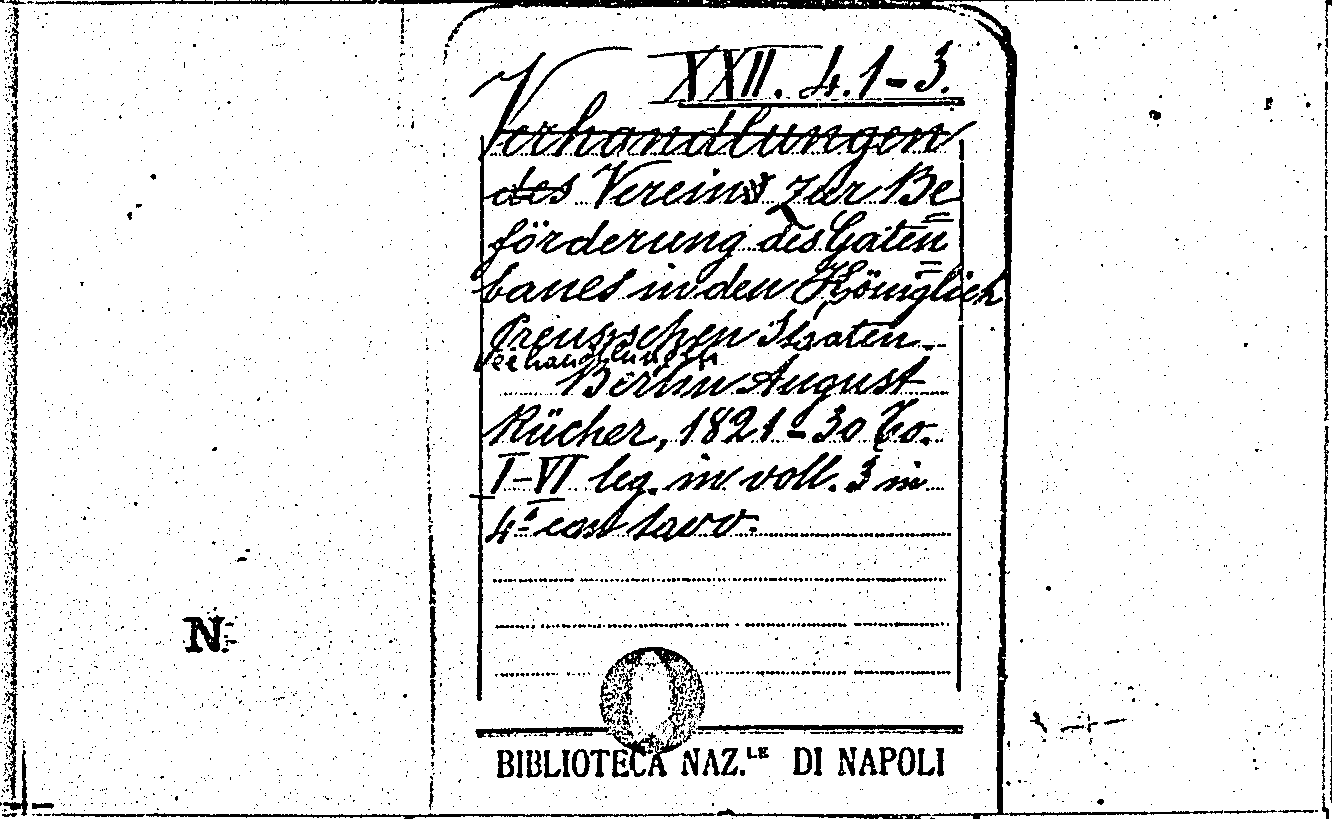 XXII. 4. 1-3.
Verhandlungen
des Vereins zur Be
förderung des Gaten
baues in den Königlich
Preusschen Staaten
Verhandlungen
Berlin August
Rücher, 1821-30 To.
I-VI leg. in voll. 3 in
4° cast tavv.
N.
BIBLIOTECA NAZ.LE DI NAPOLI